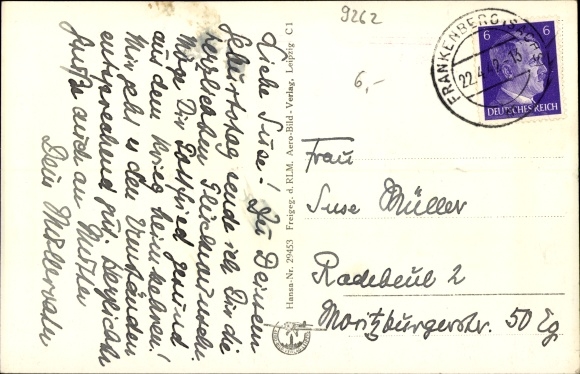 Liebe Suse! Zu Deinem
Geburtstag sende ich Dir die
herzlichsten Glückwünsche.
Möge Dir Gottfried gesund
aus dem Krieg heimkehren!
Mir geht es den Umständen
entsprechend gut. Herzliche
Grüße auch an Mutter
Dein
Hansa-Nr. 29453 Freigeg. d. RLM. Aero-Bild-Verlag, Leipzig C 1
9262
6,-
FRANKENBERG (SACHS)
22.4.42.-13
6 6
DEUTSCHES REICH
Frau
Suse Müller
Radebeul 2
Moritzburgerstr. 50 Eg.